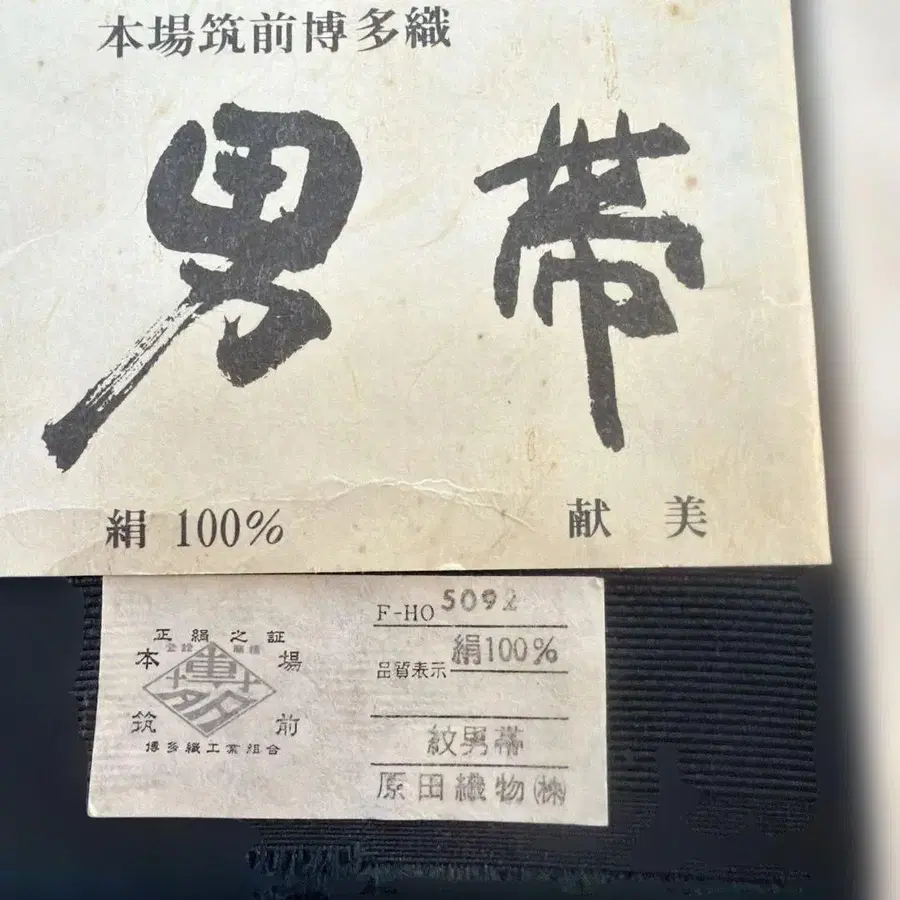 本場筑前博多織
男帯
絹 100%
献美
正絹之証
登録 商標
本場
博多
筑前
博多織工業組合
F-HO 5092
品質表示 絹100%
紋男帯
原田織物(株)